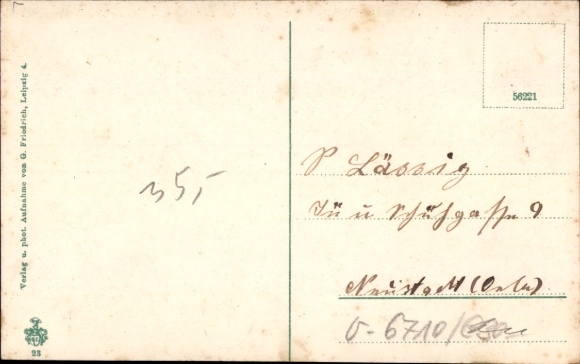 Verlag u. phot. Aufnahme von G. Friedrich, Leipzig 4.
23
35,-
56221
P Lässig
u Schuhgasse 9
Neustadt (Orla)
O-6710/